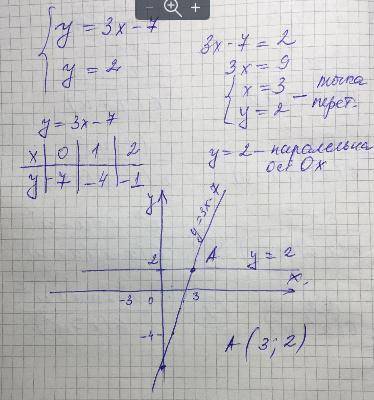 y = 3x - 7
y = 2
3x - 7 = 2
3x = 9
x = 3
y = 2
— точка перет.
y = 3x - 7
x | 0 | 1 | 2
y | -7 | -4 | -1
y = 2 - паралельна осі Ox
y
y = 3x - 7
2
A
y = 2
x
-3 0 3
-4
A (3; 2)